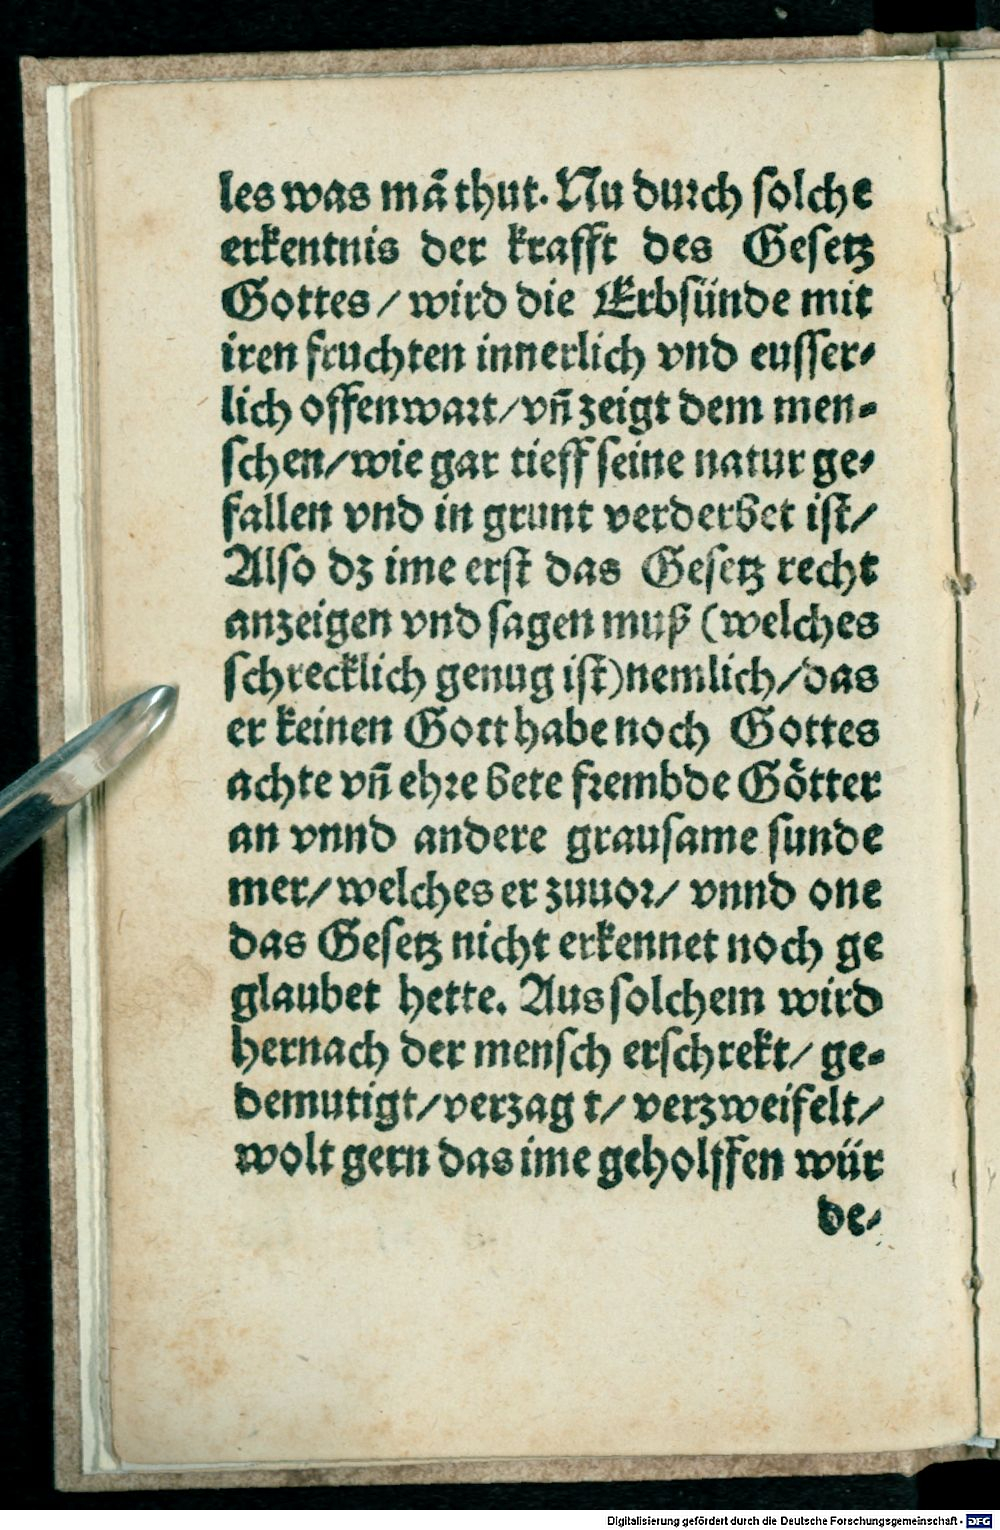 les was mā thut. Nu durch solche
erkentnis der krafft des Gesetz
Gottes/ wird die Erbsünde mit
iren fruchten innerlich vnd eusser-
lich offenwart/vñ zeigt dem men-
schen/wie gar tieff seine natur ge-
fallen vnd in grunt verderbet ist/
Also dz ime erst das Gesetz recht
anzeigen vnd sagen muß (welches
schrecklich genug ist)nemlich/das
er keinen Gott habe noch Gottes
achte vñ ehre bete frembde Götter
an vnnd andere grausame sunde
mer/ welches er zuuor/ vnnd one
das Gesetz nicht erkennet noch ge
glaubet hette. Aus solchem wird
hernach der mensch erschrekt/ ge-
demutigt/verzag t/ verzweifelt/
wolt gern das ime geholffen wür
de-
Digitalisierung gefördert durch die Deutsche Forschungsgemeinschaft - DFG